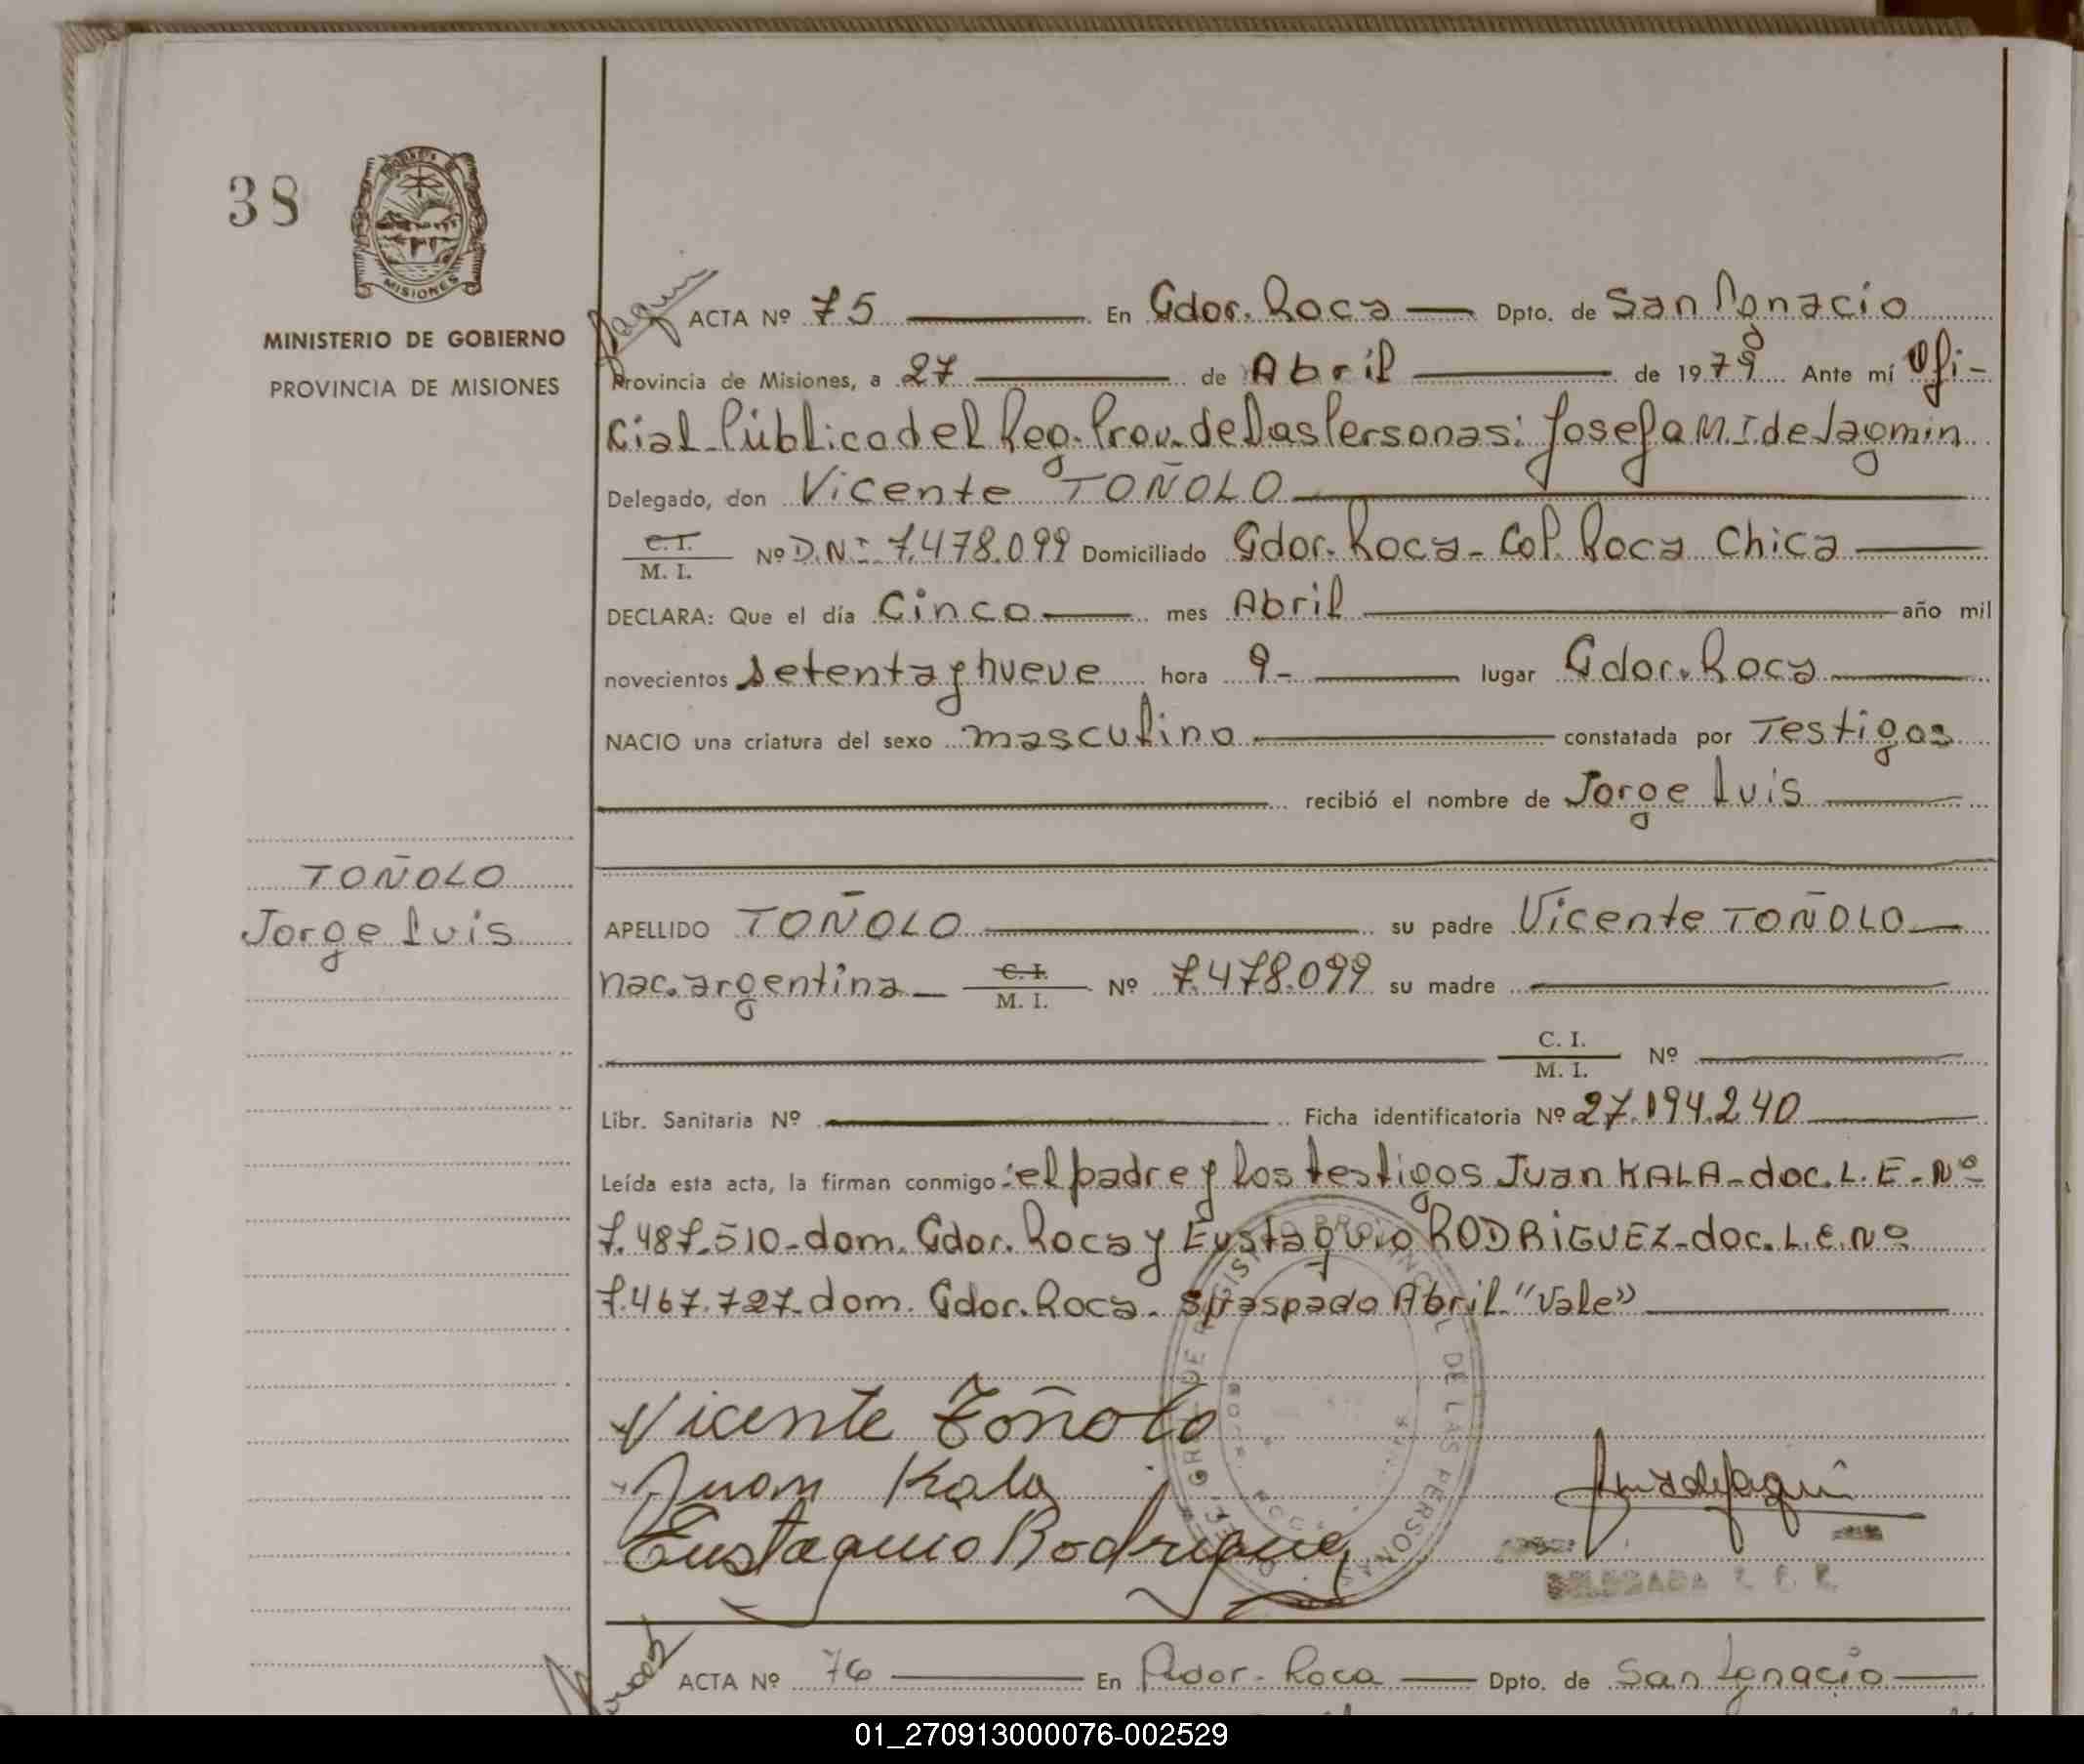 38
MISIONES
MINISTERIO DE GOBIERNO
PROVINCIA DE MISIONES
ACTA Nº 75 En Gdor. Roca Dpto. de San Ignacio
Provincia de Misiones, a 27 de Abril de 1979 Ante mí Ofi-
cial Público del Reg. Prov. de las Personas: Josefa M I de Jagmin
Delegado, don Vicente TOÑOLO
C. I.
M. I. Nº D.N.I. 7.478.099 Domiciliado Gdor. Roca - Col. Roca Chica
DECLARA: Que el día Cinco mes Abril año mil
novecientos setenta y nueve hora 9- lugar Gdor. Roca
NACIO una criatura del sexo masculino constatada por Testigos
recibió el nombre de Jorge Luis
TOÑOLO
Jorge Luis
APELLIDO TOÑOLO su padre Vicente TOÑOLO
nac. argentina - C. I. M. I. Nº 7.478.099 su madre
C. I.
M. I. Nº
Libr. Sanitaria Nº Ficha identificatoria Nº 27.194.240
Leída esta acta, la firman conmigo: el padre y los testigos Juan KALA - doc. L. E. Nº
7.487.510 - dom. Gdor. Roca y Eustaquio RODRIGUEZ - doc. L. E. Nº
7.467.727 - dom. Gdor. Roca - S/raspado Abril "Vale"
Vicente Toñolo
Juan Kala
Eustaquio Rodriguez
DE LAS PERSONAS
DELEGADA
ACTA Nº 76 En Gdor. Roca Dpto. de San Ignacio
01_270913000076-002529